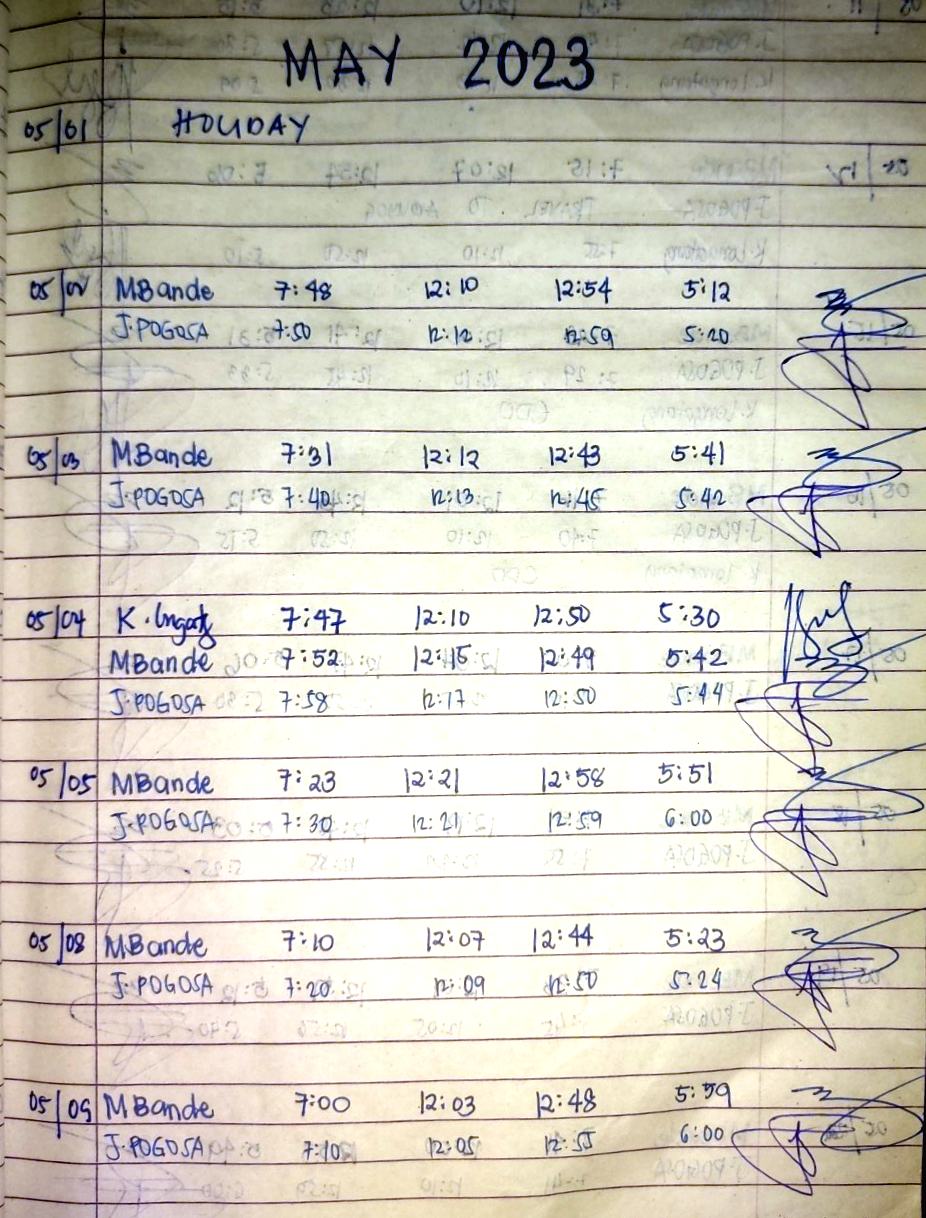 MAY 2023
05/01 HOLIDAY
05/02 MBande 7:48 12:10 12:54 5:12
J.POGOSA 7:50 12:12 12:59 5:20
05/03 MBande 7:31 12:12 12:43 5:41
J.POGOSA 7:40 12:13 12:45 5:42
05/04 K. 7:47 12:10 12:50 5:30
MBande 7:52 12:15 12:49 5:42
J.POGOSA 7:58 12:17 12:50 5:44
05/05 MBande 7:23 12:21 12:58 5:51
J.POGOSA 7:30 12:21 12:59 6:00
05/08 MBande 7:10 12:07 12:44 5:23
J.POGOSA 7:20 12:09 12:50 5:24
05/09 MBande 7:00 12:03 12:48 5:59
J.POGOSA 7:10 12:05 12:55 6:00